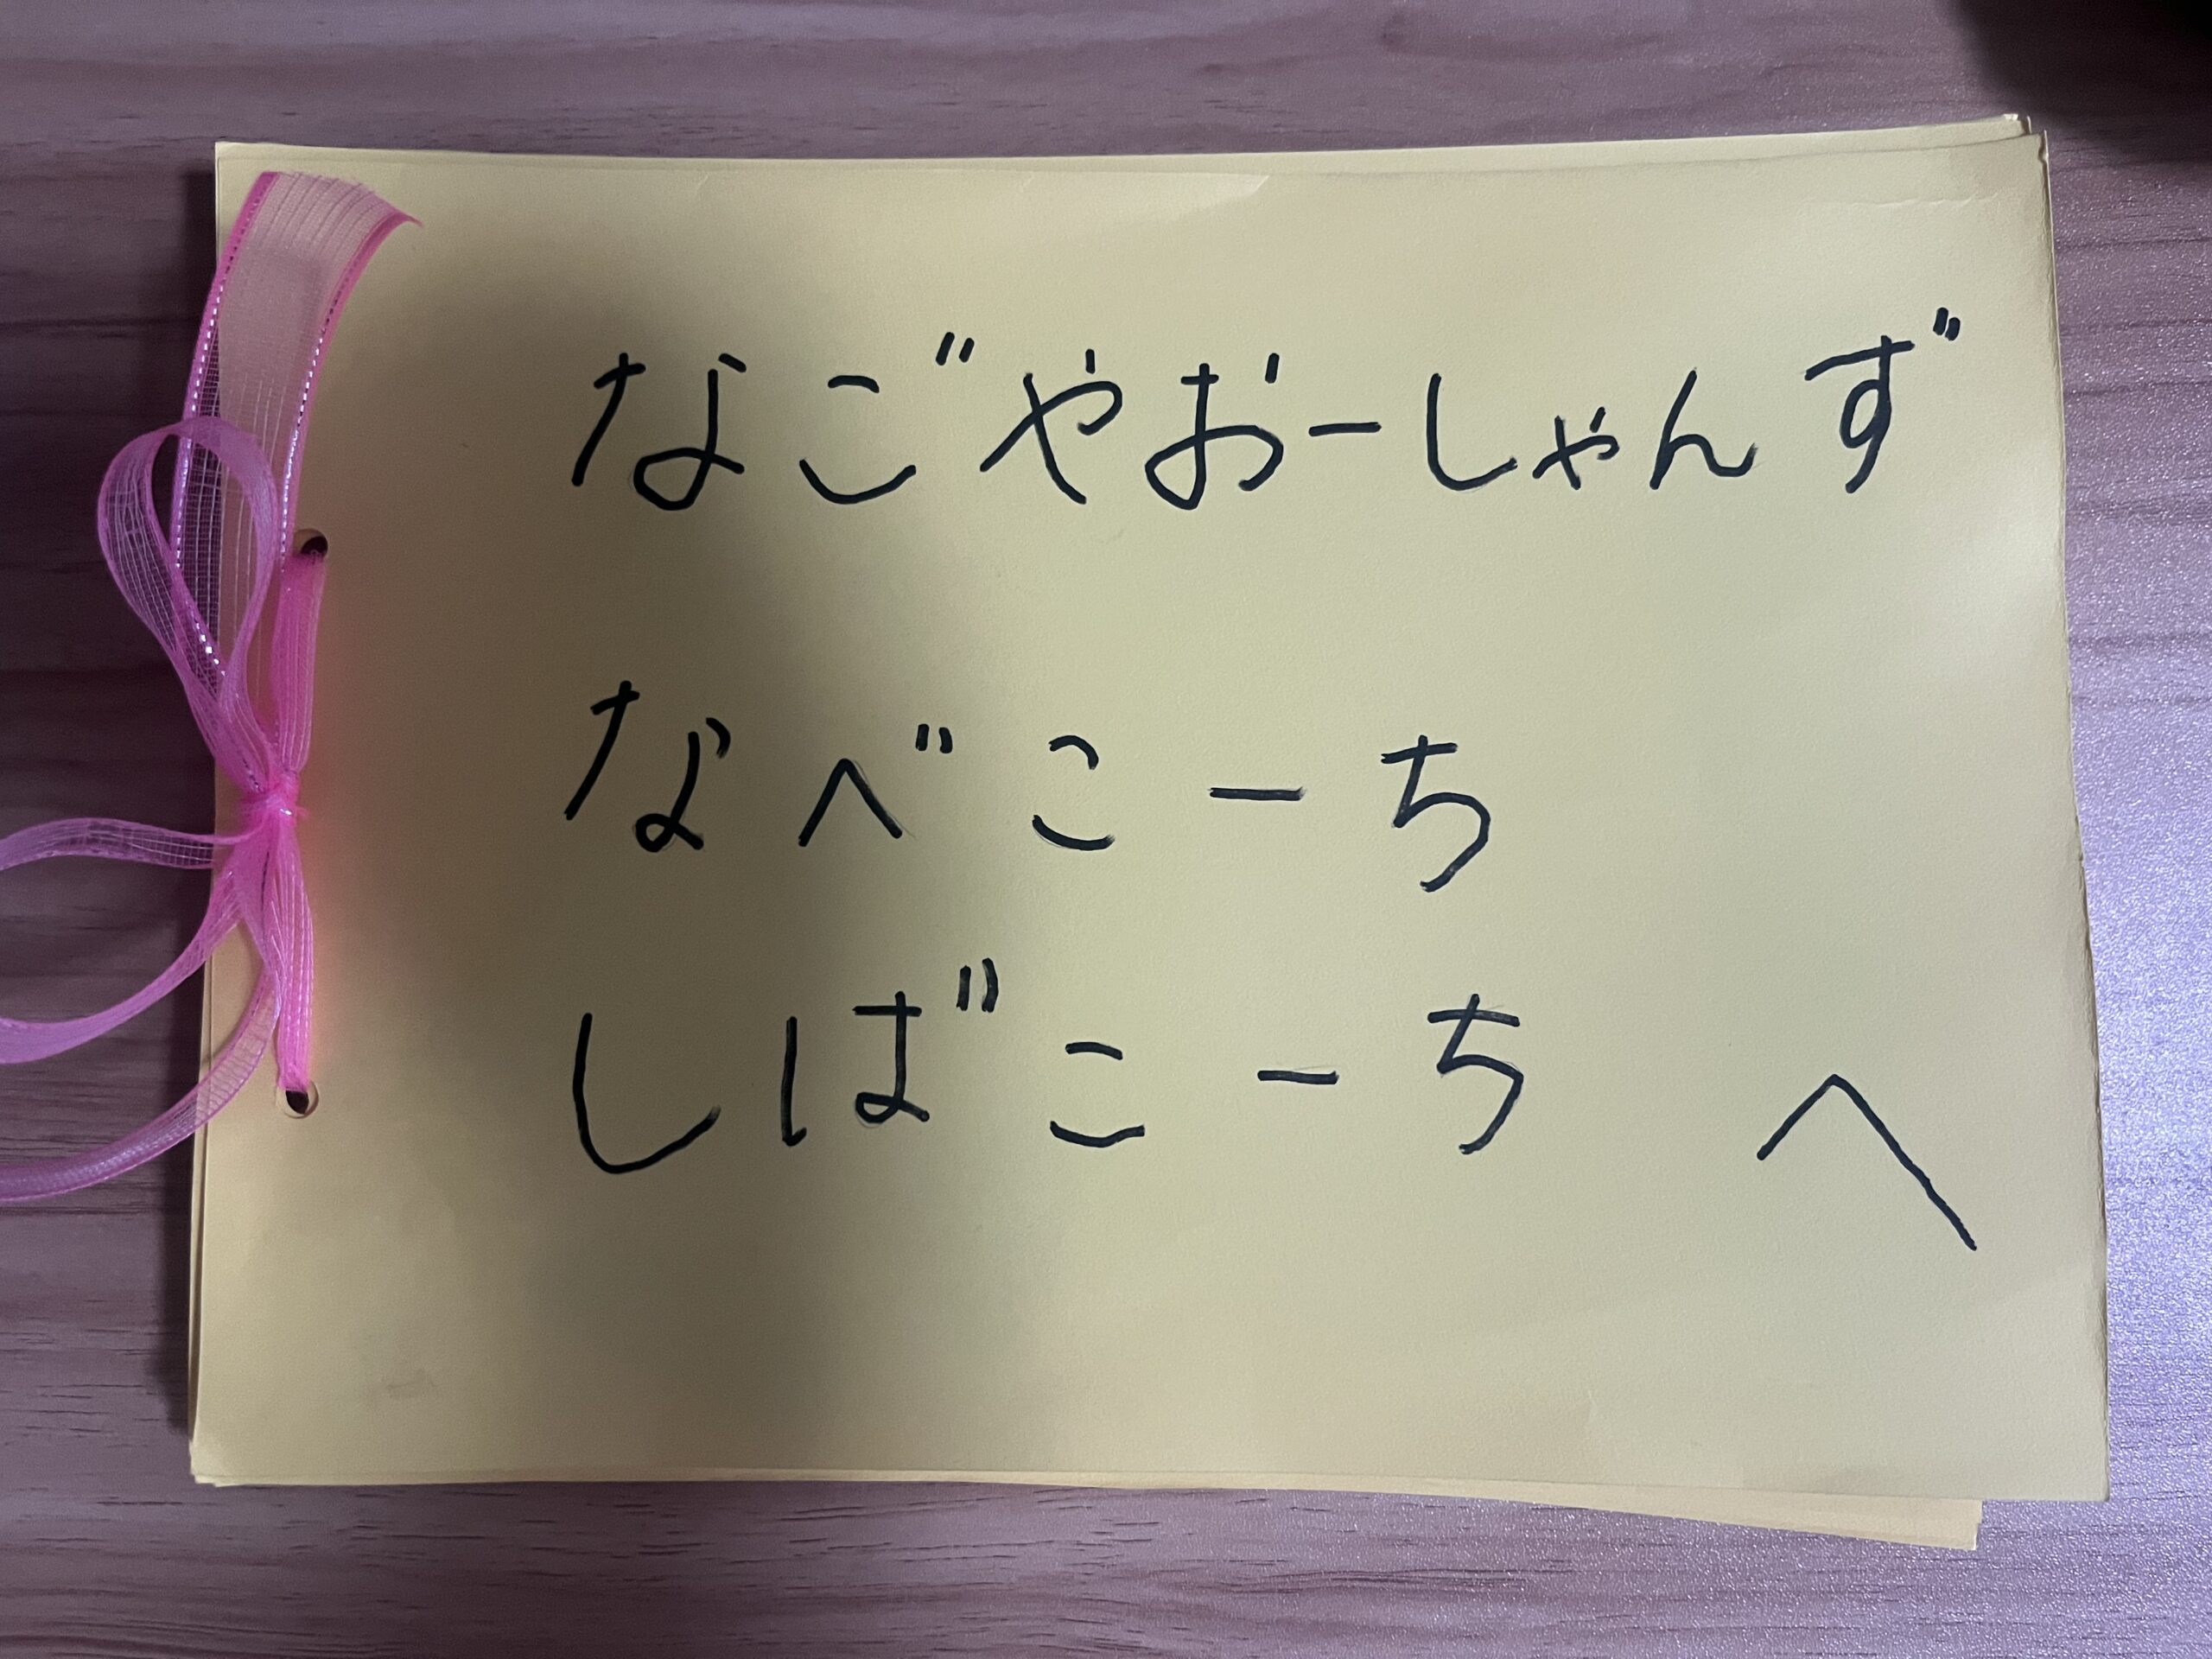 なごやおーしゃんず
なべこーち
しばこーち へ